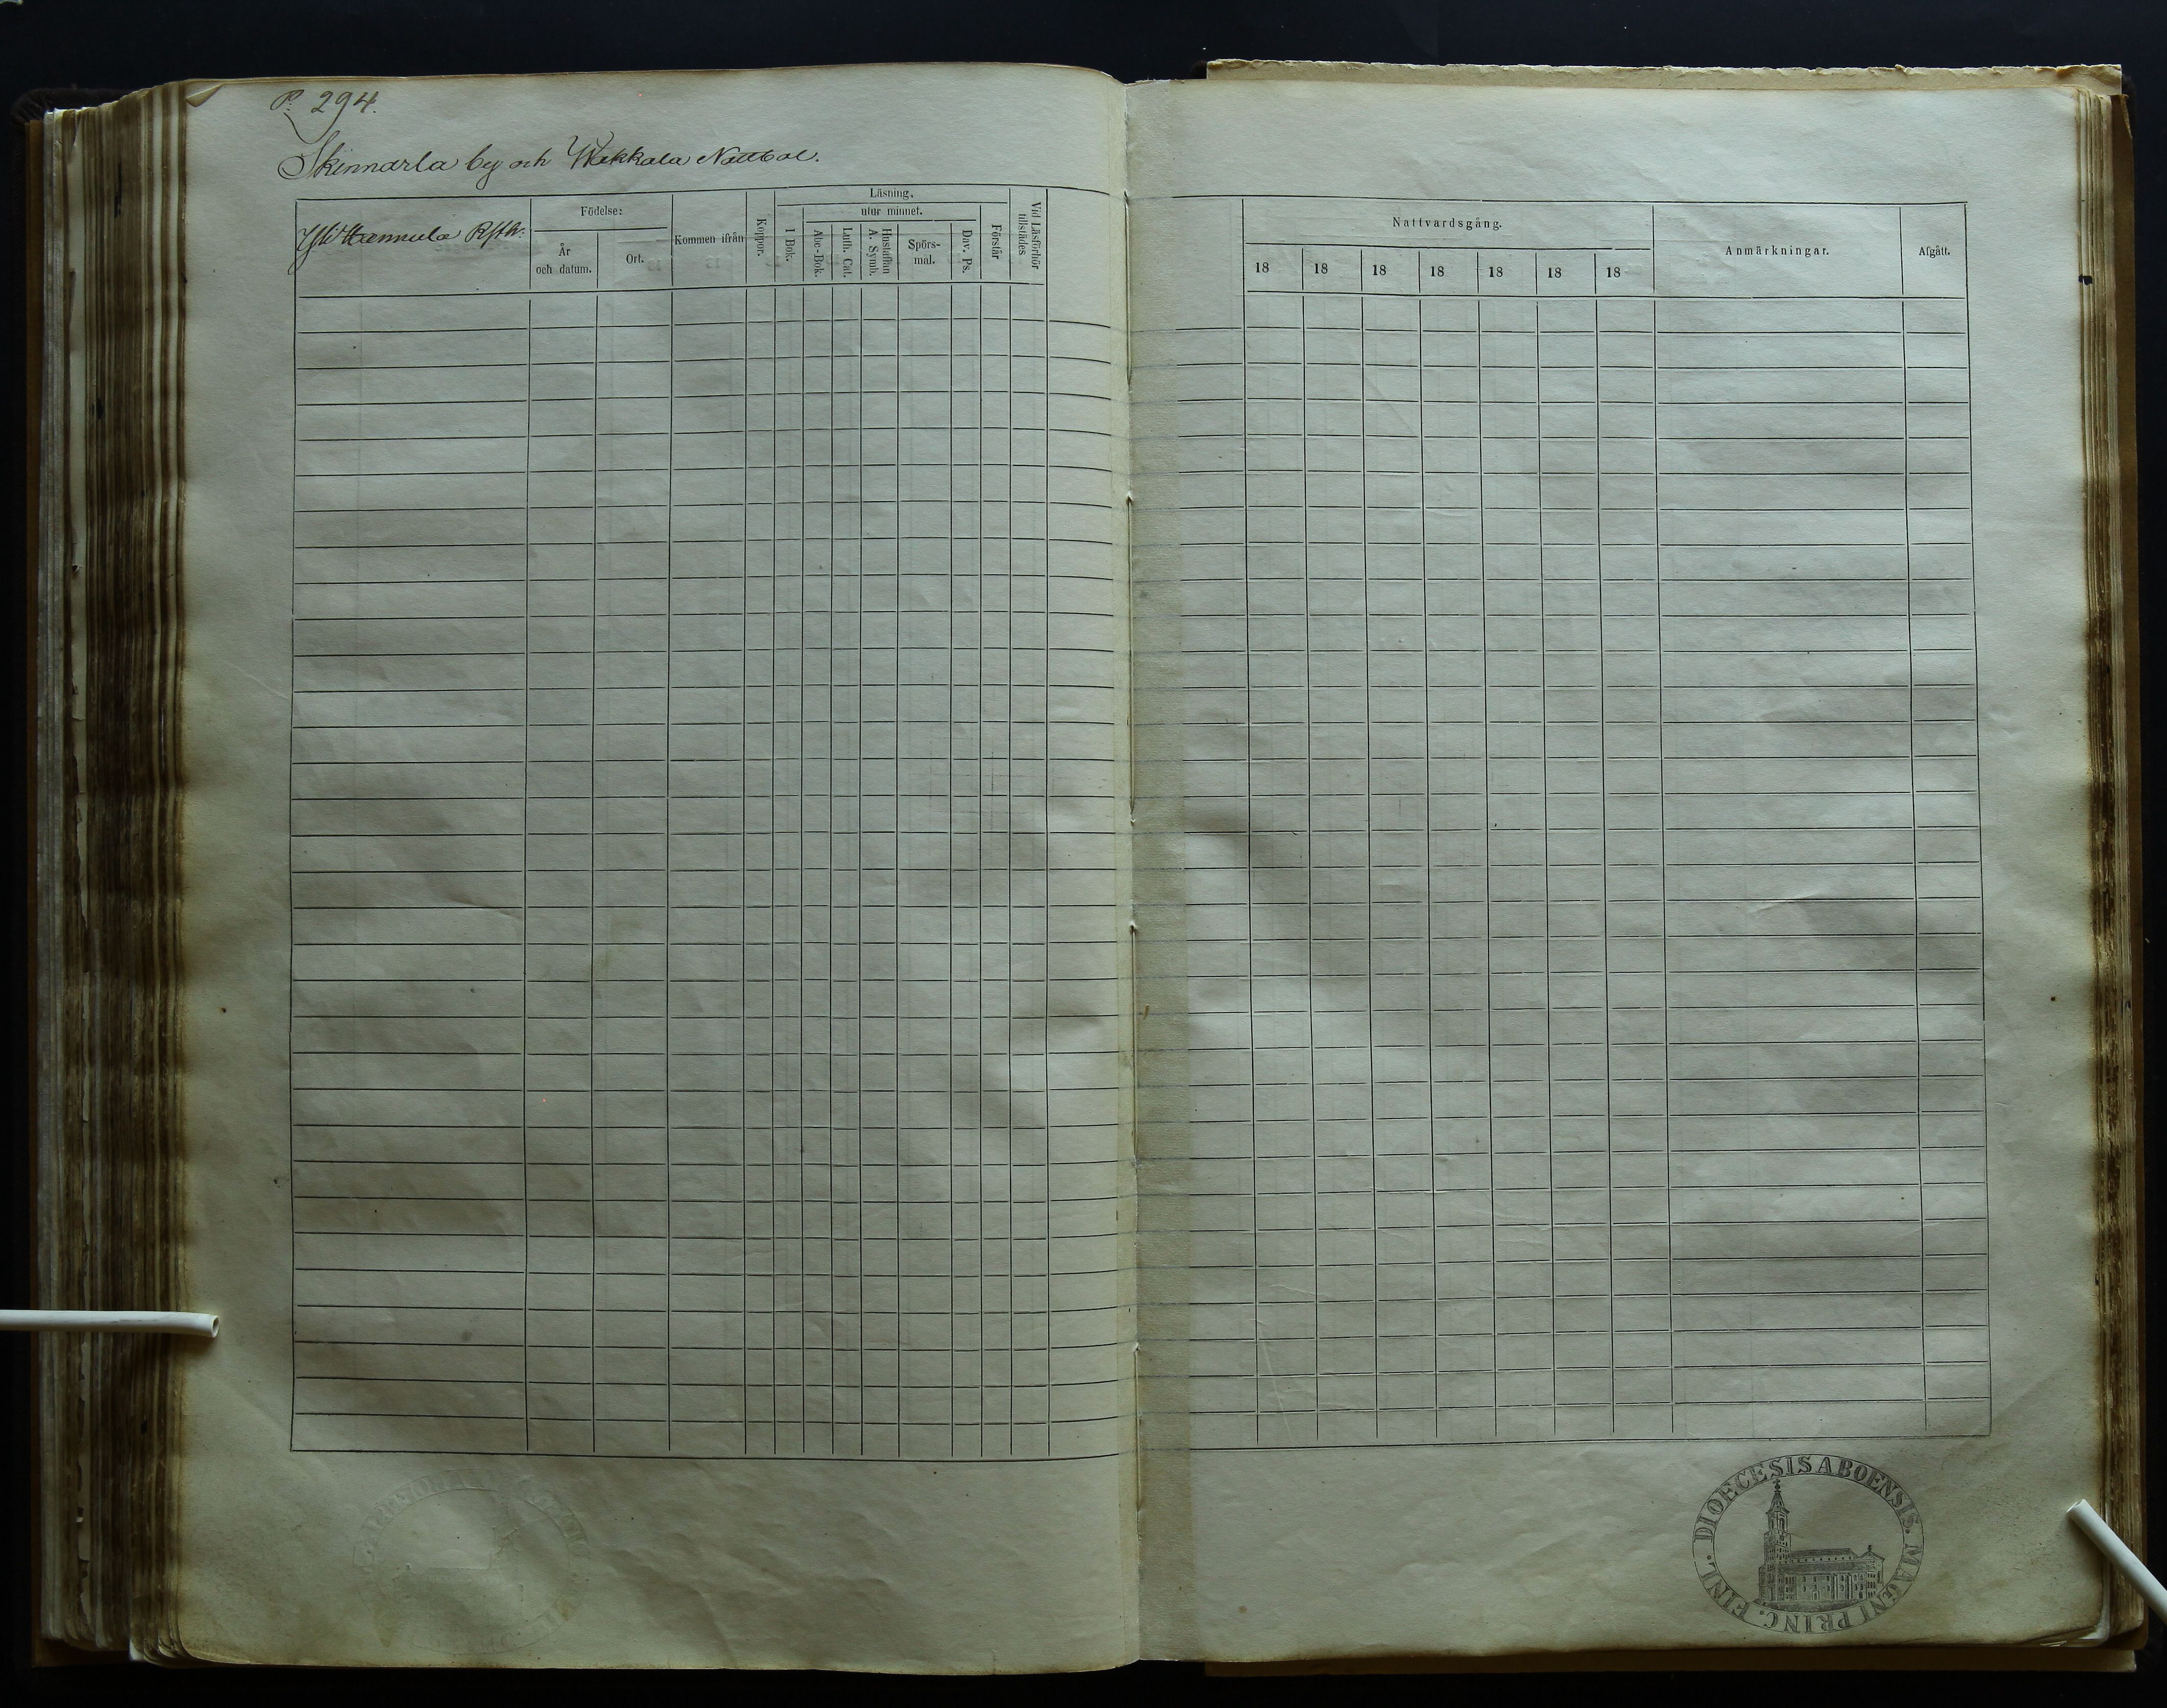 P. 294.
Skinnarla by och Wakkala Nattbol.
Yli Hannula Rsth.
Födelse:
År
och datum.
Ort.
Kommen ifrån
Koppor.
Läsning,
I Bok.
utur minnet.
Abc-Bok.
Luth. Cat.
Hustaflan
A. Symb.
Spörs-
mal.
Dav. Ps.
Förstår
Vid Läsförhör
tillstädes
Nattvardsgång.
18 18 18 18 18 18 18
Anmärkningar.
Afgått.
DIOECESIS ABOENSIS. MAGNI PRINC. FINL.